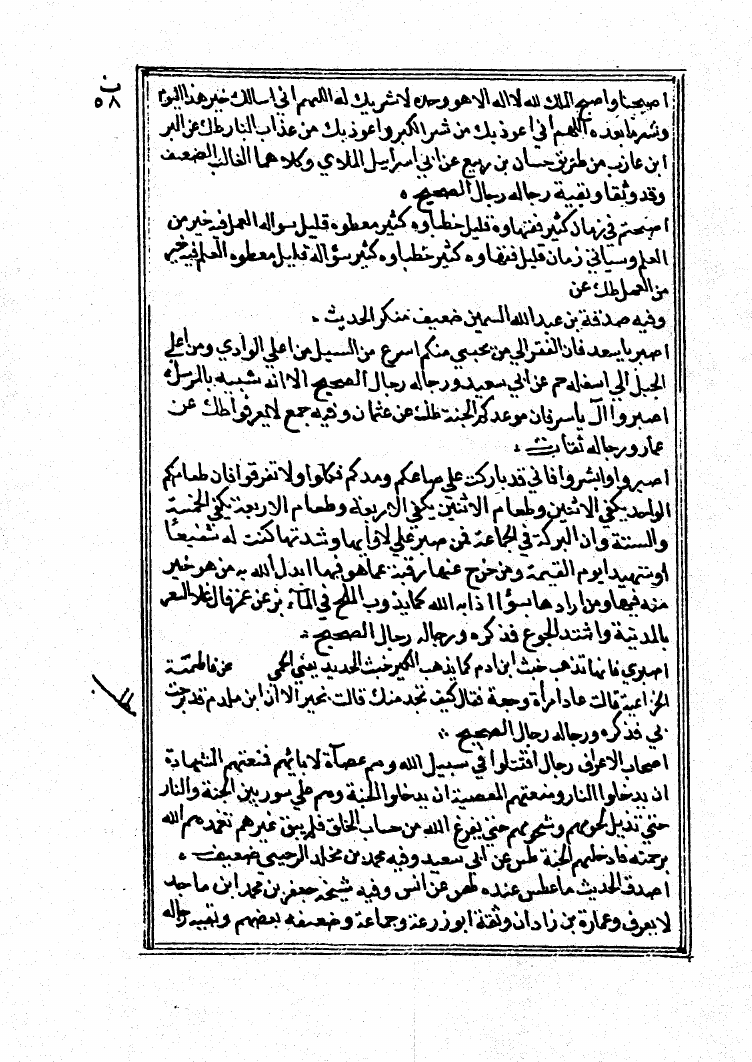 ب
٥٨
اصبحنا واصبح الملك لله لا اله الا هو وحده لا شريك له اللهم اني اسالك خير هذا اليوم
وشر ما بعده اللهم اني اعوذ بك من شر الكبر واعوذ بك من عذاب النار طك عن البر
ابن عازب من طريق حسان بن ربيع عن ابي اسراييل الملاي وكلاهما الغالب الضعف
وقد وثقا وبقية رجاله رجال الصحيح ٥
اصبحتم في زمان كثير فقهاوه قليل خطباوه كثير معطوه قليل سواله العمل فيه خير من
العلم وسياتي زمان قليل فقهاوه كثير خطباوه كثير سؤاله قليل معطوه العلم فيه خير
من العمل طك عن
وفيه صدقة بن عبد الله السمين ضعيف منكر الحديث .
اصبر يا سعد فان الفقر الي من يحبني منكم اسرع من السيل من اعلي الوادي ومن اعلي
الجبل الي اسفله حم عن ابي سعيد ورجاله رجال الصحيح الا انه شبيه بالمرسل ٥
اصبروا آل ياسر فان موعدكم الجنة طك عن عثمان وفيه جمع لا يعرفوا طك عن
عمار ورجاله ثقات .
اصبروا وابشروا فاني قد باركت علي صاعكم ومدكم فكلوا ولا تفرقوا فان طعامكم
الواحد يكفي الاثنين وطعام الاثنين يكفي الاربعة وطعام الاربعة يكفي الخمسة
والستة وان البركة في الجماعة فمن صبر علي لاوايها وشدتها كنت له شفيعا
او شهيدا يوم القيمة ومن خرج عنها رغبة عما هو فيها ابدل الله به من هو خير
منه فيها ومن ارادها بسؤا اذابه الله كما يذوب الملح في المآء بز عن عمر قال غلا السعر
بالمدينة واشتد الجوع فذكره ورجاله رجال الصحيح .
اصبري فانها تذهب خبث ابن ادم كما يذهب الكير خبث الحديد يعني الحمي عن فاطمة
الخزاعية قالت عاد امراة وجعة فقال كيف تجدينك قالت بخير الا ان ابن ملدم قد برحت
بي فذكره ورجاله رجال الصحيح .
اصحاب الاعراف رجال اقتتلوا في سبيل الله وهم عصاة لابائهم فمنعتهم الشهادة
ان يدخلوا النار ومنعتهم المعصية ان يدخلوا الجنة وهم علي سور بين الجنة والنار
حتي تذبل لحومهم وشحومهم حتي يفرغ الله من حساب الخلق فلم يبق غيرهم تغمدهم الله
برحمته فادخلهم الجنة طس عن ابي سعيد وفيه محمد بن مخلد الرعيني ضعيف .
اصدق الحديث ما عطس عنده طس عن انس وفيه شيخه جعفر بن محمد ابن ماجد
لا يعرف وعمارة بن زادان وثقة ابو زرعة وجماعة وضعفه بعضهم وبقية رجاله